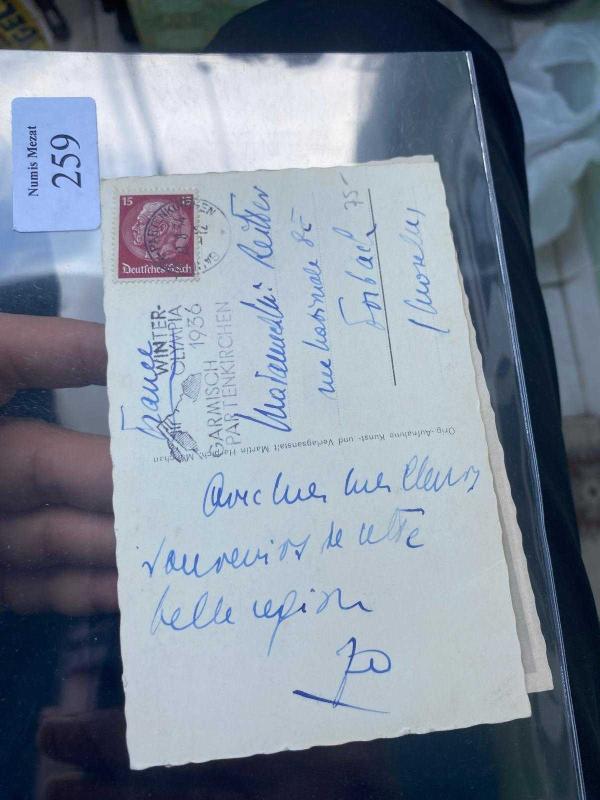 Numis Mezat
259
15 15
Deutsches Reich
WINTER-
OLYMPIA
1936
GARMISCH
PARTENKIRCHEN
France
Reuter
rue Nationale 85
75-
Forbach
(Moselle)
Orig.-Aufnahme Kunst- und Verlagsanstalt Martin
Avec mes meilleurs
souvenirs de cette
belle région
Jo